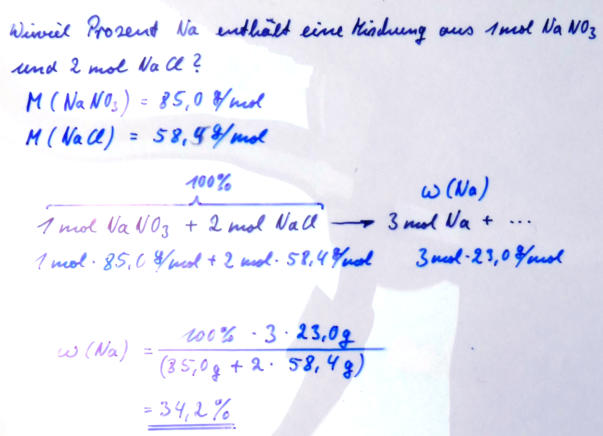 Wieviel Prozent Na enthält eine Mischung aus 1 mol NaNO₃
und 2 mol NaCl?
M (NaNO₃) = 85,0 g/mol
M (NaCl) = 58,4 g/mol
100% w (Na)
1 mol NaNO₃ + 2 mol NaCl ⟶ 3 mol Na + ...
1 mol · 85,0 g/mol + 2 mol · 58,4 g/mol 3 mol · 23,0 g/mol
100% · 3 · 23,0 g
w (Na) =
(85,0 g + 2 · 58,4 g)
= 34,2 %